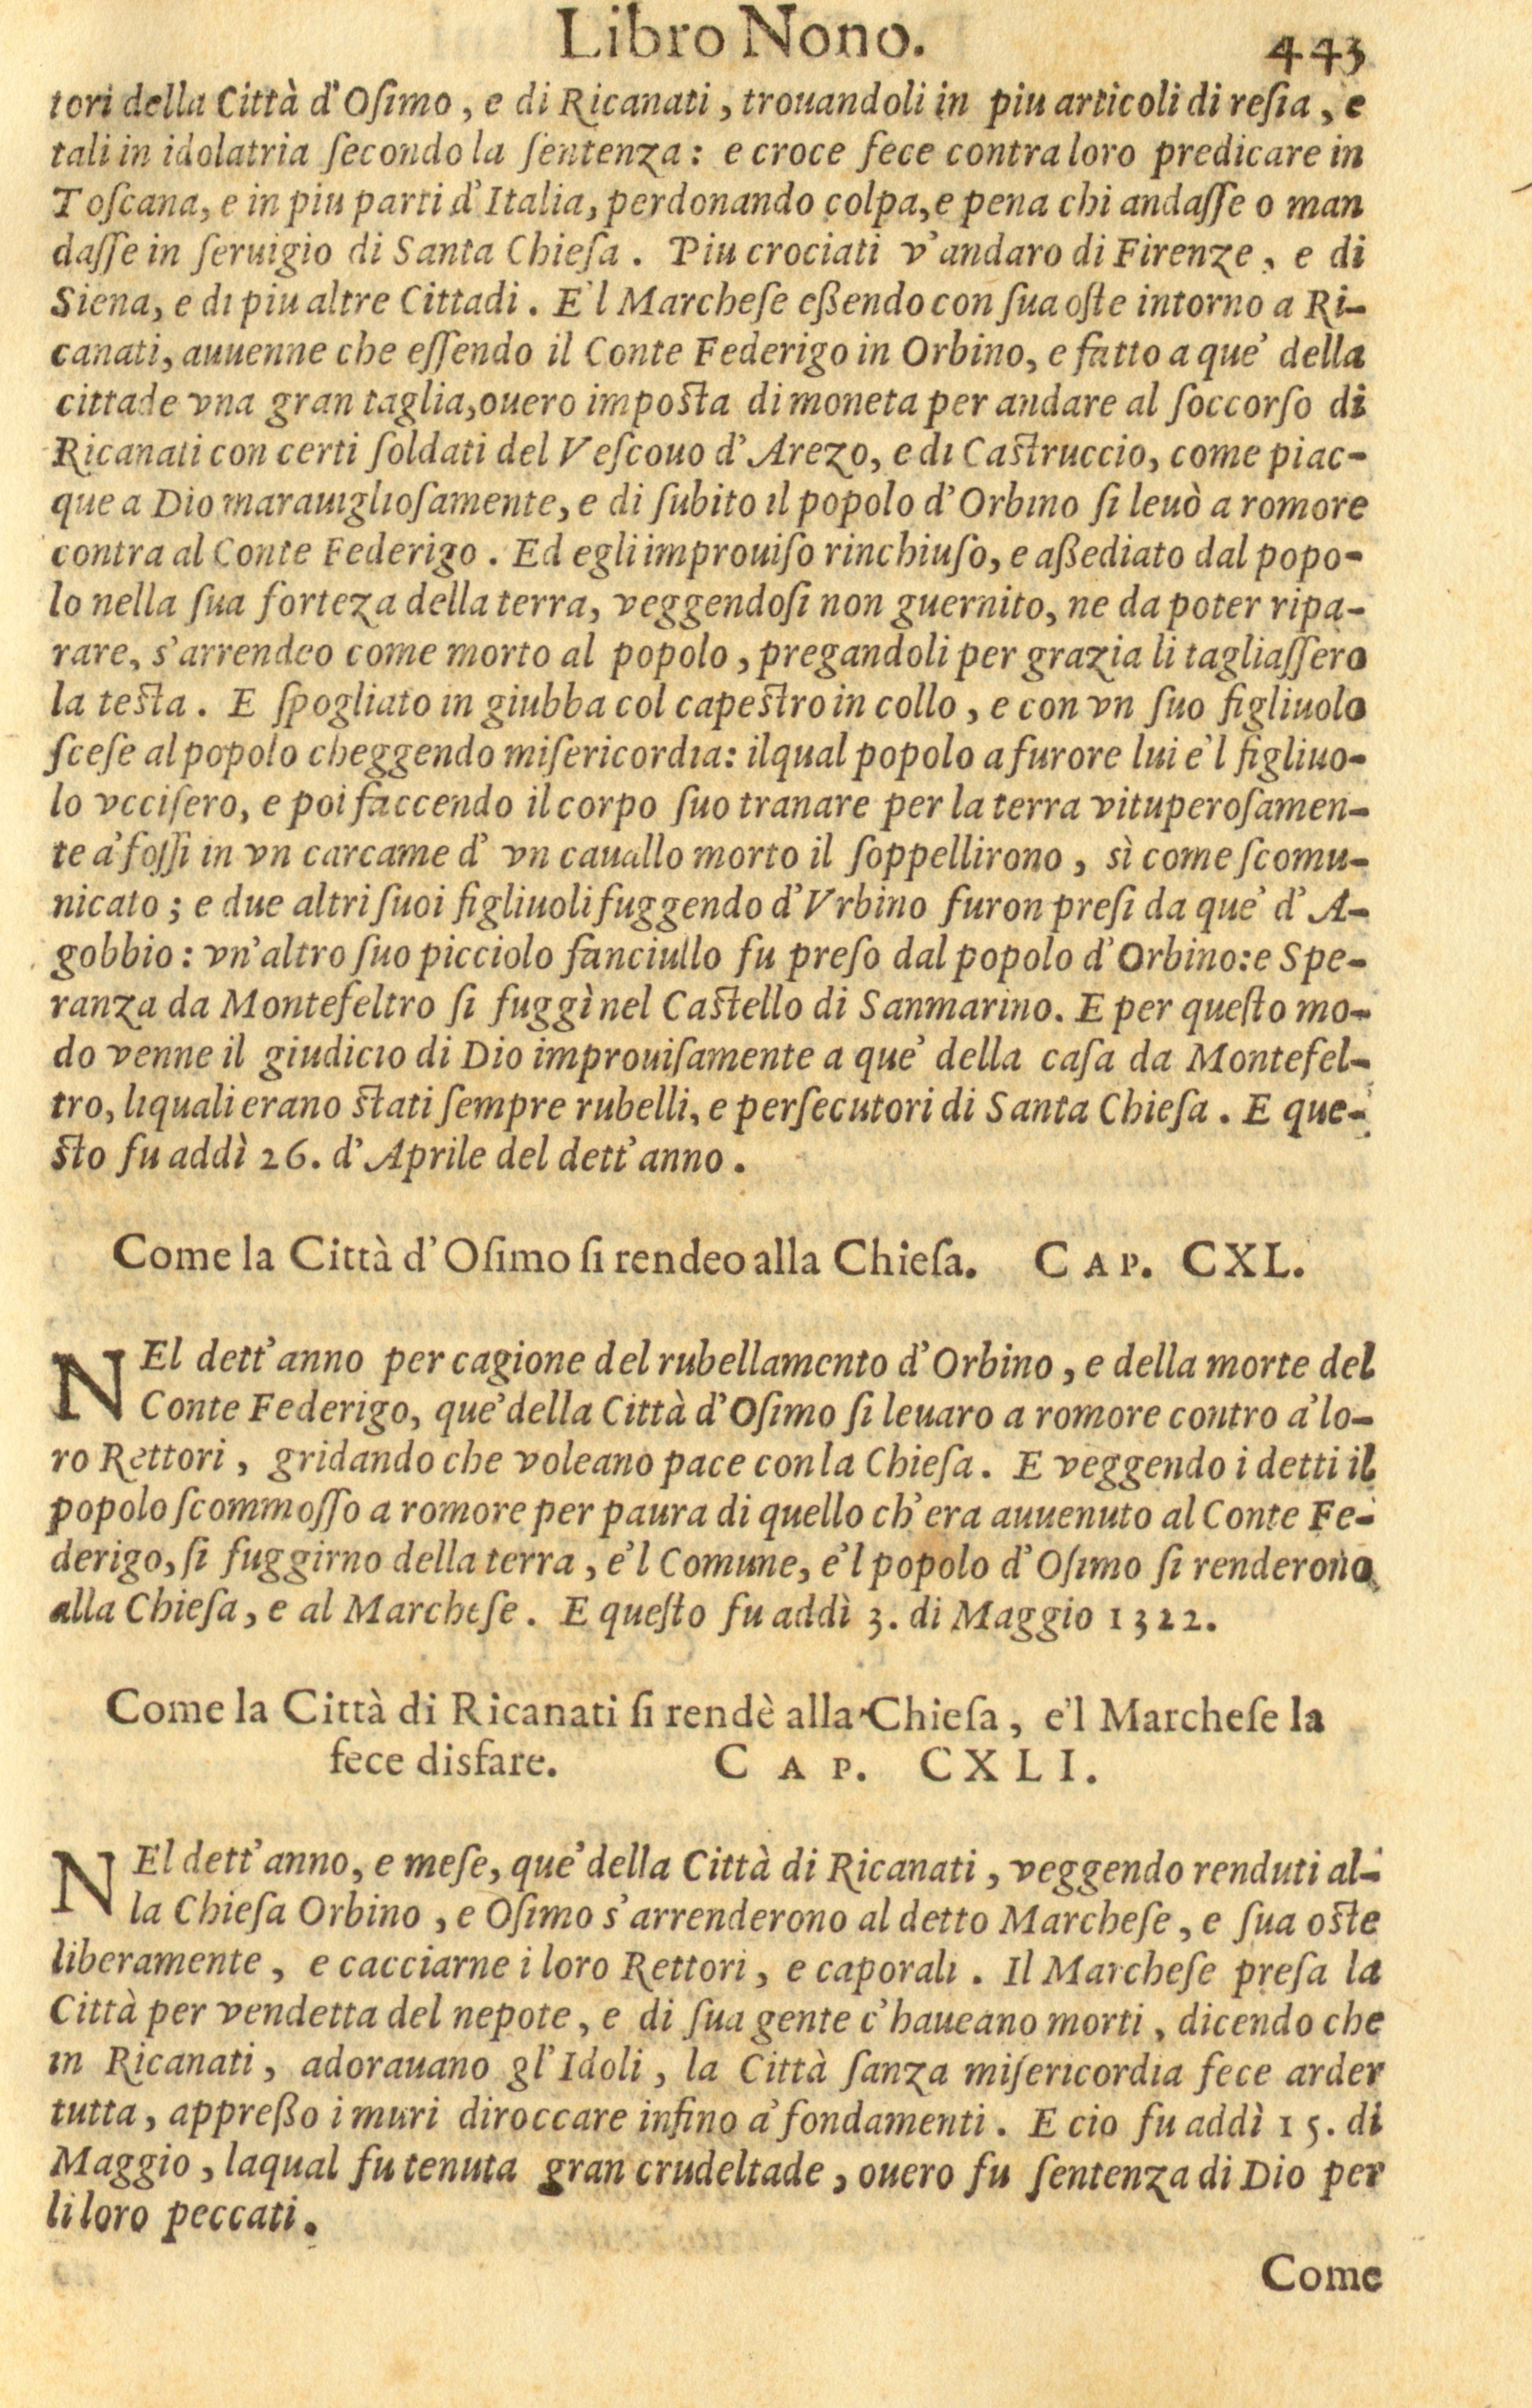 Libro Nono. 443
tori della Città d'Oſimo, e di Ricanati, trouandoli in piu articoli di reſia, e
tali in idolatria ſecondo la ſentenza: e croce fece contra loro predicare in
Toſcana, e in piu parti d'Italia, perdonando colpa, e pena chi andaſſe o man
daſſe in ſeruigio di Santa Chieſa. Piu crociati v'andaro di Firenze, e di
Siena, e di piu altre Cittadi. E'l Marcheſe eßendo con ſua oſte intorno a Ri-
canati, auuenne che eſſendo il Conte Federigo in Orbino, e fatto a que' della
cittade vna gran taglia, ouero impoſta di moneta per andare al ſoccorſo di
Ricanati con certi ſoldati del Veſcouo d'Arezo, e di Caſtruccio, come piac-
que a Dio marauiglioſamente, e di ſubito il popolo d'Orbino ſi leuò a romore
contra al Conte Federigo. Ed egli improuiſo rinchiuſo, e aßediato dal popo-
lo nella ſua forteza della terra, veggendoſi non guernito, ne da poter ripa-
rare, s'arrendeo come morto al popolo, pregandoli per grazia li tagliaſſero
la teſta. E ſpogliato in giubba col capeſtro in collo, e con vn ſuo figliuolo
ſceſe al popolo cheggendo miſericordia: ilqual popolo a furore lui e'l figliuo-
lo vcciſero, e poi faccendo il corpo ſuo tranare per la terra vituperoſamen-
te a' foſſi in vn carcame d'vn cauallo morto il ſoppellirono, sì come ſcomu-
nicato; e due altri ſuoi figliuoli fuggendo d'Vrbino furon preſi da que' d'A-
gobbio: vn'altro ſuo picciolo fanciullo fu preſo dal popolo d'Orbino: e Spe-
ranza da Montefeltro ſi fuggì nel Caſtello di Sanmarino. E per queſto mo-
do venne il giudicio di Dio improuiſamente a que' della caſa da Montefel-
tro, liquali erano ſtati ſempre rubelli, e perſecutori di Santa Chieſa. E que-
ſto fu addì 26. d'Aprile del dett'anno.
Come la Città d'Oſimo ſi rendeo alla Chieſa. CAP. CXL.
NEl dett'anno per cagione del rubellamento d'Orbino, e della morte del
Conte Federigo, que' della Città d'Oſimo ſi leuaro a romore contro a' lo-
ro Rettori, gridando che voleano pace con la Chieſa. E veggendo i detti il
popolo ſcommoſſo a romore per paura di quello ch'era auuenuto al Conte Fe-
derigo, ſi fuggirno della terra, e'l Comune, e'l popolo d'Oſimo ſi renderono
alla Chieſa, e al Marcheſe. E queſto fu addì 3. di Maggio 1322.
Come la Città di Ricanati ſi rendè alla Chieſa, e'l Marcheſe la
fece disfare. CAP. CXLI.
NEl dett'anno, e meſe, que' della Città di Ricanati, veggendo renduti al-
la Chieſa Orbino, e Oſimo s'arrenderono al detto Marcheſe, e ſua oſte
liberamente, e cacciarne i loro Rettori, e caporali. Il Marcheſe preſa la
Città per vendetta del nepote, e di ſua gente c'haueano morti, dicendo che
in Ricanati, adorauano gl'Idoli, la Città ſanza miſericordia fece arder
tutta, appreßo i muri diroccare infino a' fondamenti. E cio fu addì 15. di
Maggio, laqual fu tenuta gran crudeltade, ouero fu ſentenza di Dio per
li loro peccati.
Come